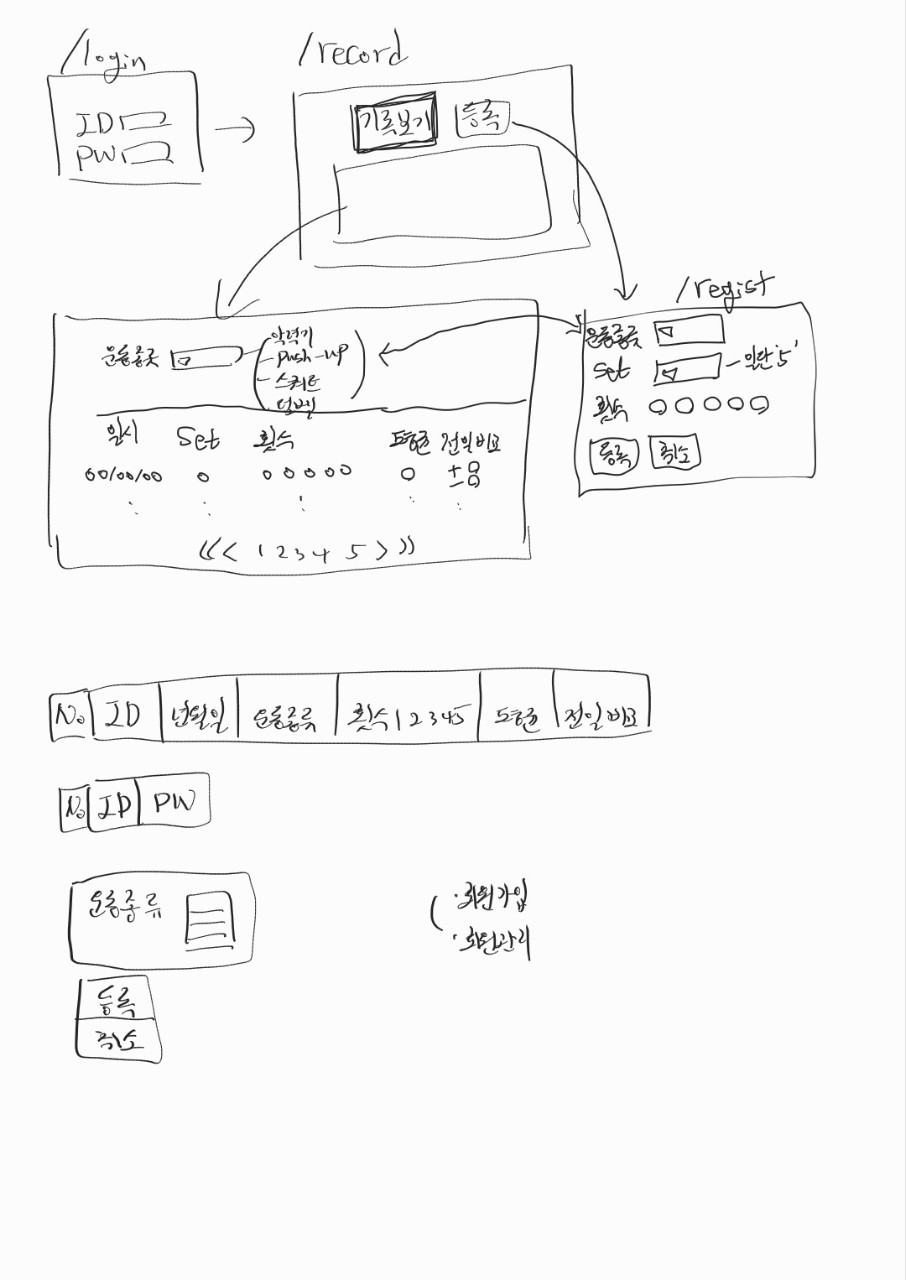 /login
ID
PW
/record
기록보기 등록
운동종류
악력기
push-up
스쿼트
덤벨
일시 Set 횟수 도합 전일비교
00/00/00 0 0 0 0 0 0 0 ±0
<<< 1 2 3 4 5 >>>
/regist
운동종류
Set 일단 '5'
횟수 0 0 0 0 0
등록 취소
No ID 년월일 운동종류 횟수 1 2 3 4 5 전일비교
No ID PW
운동종류
등록
취소
· 회원가입
· 회원관리